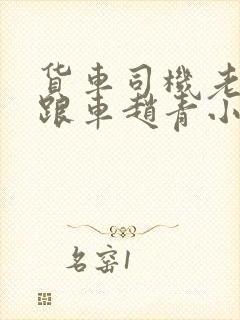 货車司機老
跟車趙青小
名窑1